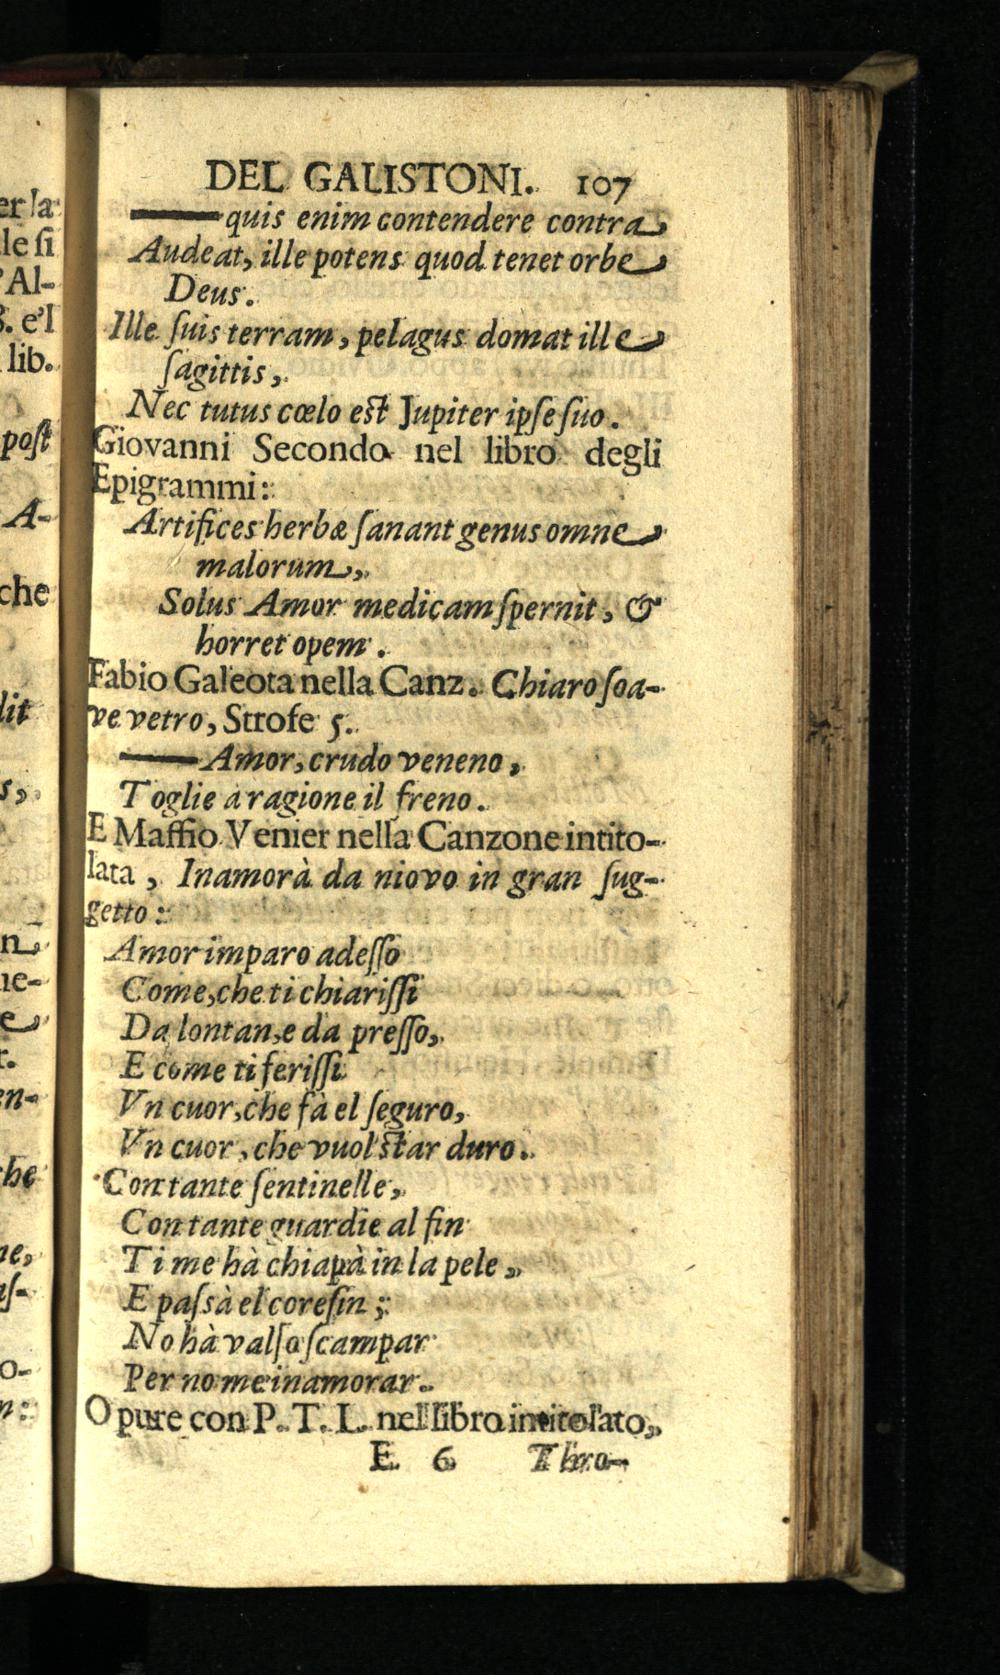 er la
le ſi
'Al-
8. e'l
lib.
poſt
A-
che
dit
s,
n
ue-
e
r.
en-
che
ne,
aſ-
o-
n:
DEL GALISTONI. 107
——quis enim contendere contra
Audeat, ille potens quod tenet orbe
Deus.
Ille ſuis terram, pelagus domat ille
ſagittis,
Nec tutus cœlo eſt Jupiter ipſe ſuo.
Giovanni Secondo nel libro degli
Epigrammi:
Artifices herbæ ſanant genus omne
malorum,
Solus Amor medicam ſpernit, &
horret opem.
Fabio Galeota nella Canz. Chiaro ſoa-
ve vetro, Strofe 5.
——Amor, crudo veneno,
Toglie a ragione il freno.
E Maffio Venier nella Canzone intito-
lata, Inamorà da niovo in gran ſug-
getto:
Amor imparo adeſſo
Come, che ti chiariſſi
Da lontan, e da preſſo,
E come ti feriſſi
Vn cuor, che fà el ſeguro,
Vn cuor, che vuol ſtar duro.
Con tante ſentinelle,
Con tante guardie al fin
Ti me hà chiapà in la pele,
E paſsà el coreſin;
No hà valſo ſcampar
Per no me inamorar.
O pure con P. T. L. nel libro intitolato,
E 6 Thro-